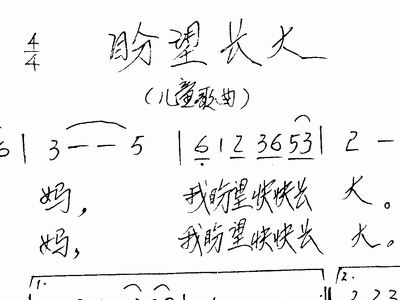 4/4 盼望长大
（儿童歌曲）
6 | 3 - - 5 | 6 1 2 3 6 5 3 | 2 -
妈， 我盼望快快长 大。
妈， 我盼望快快长 大。
1. 2.